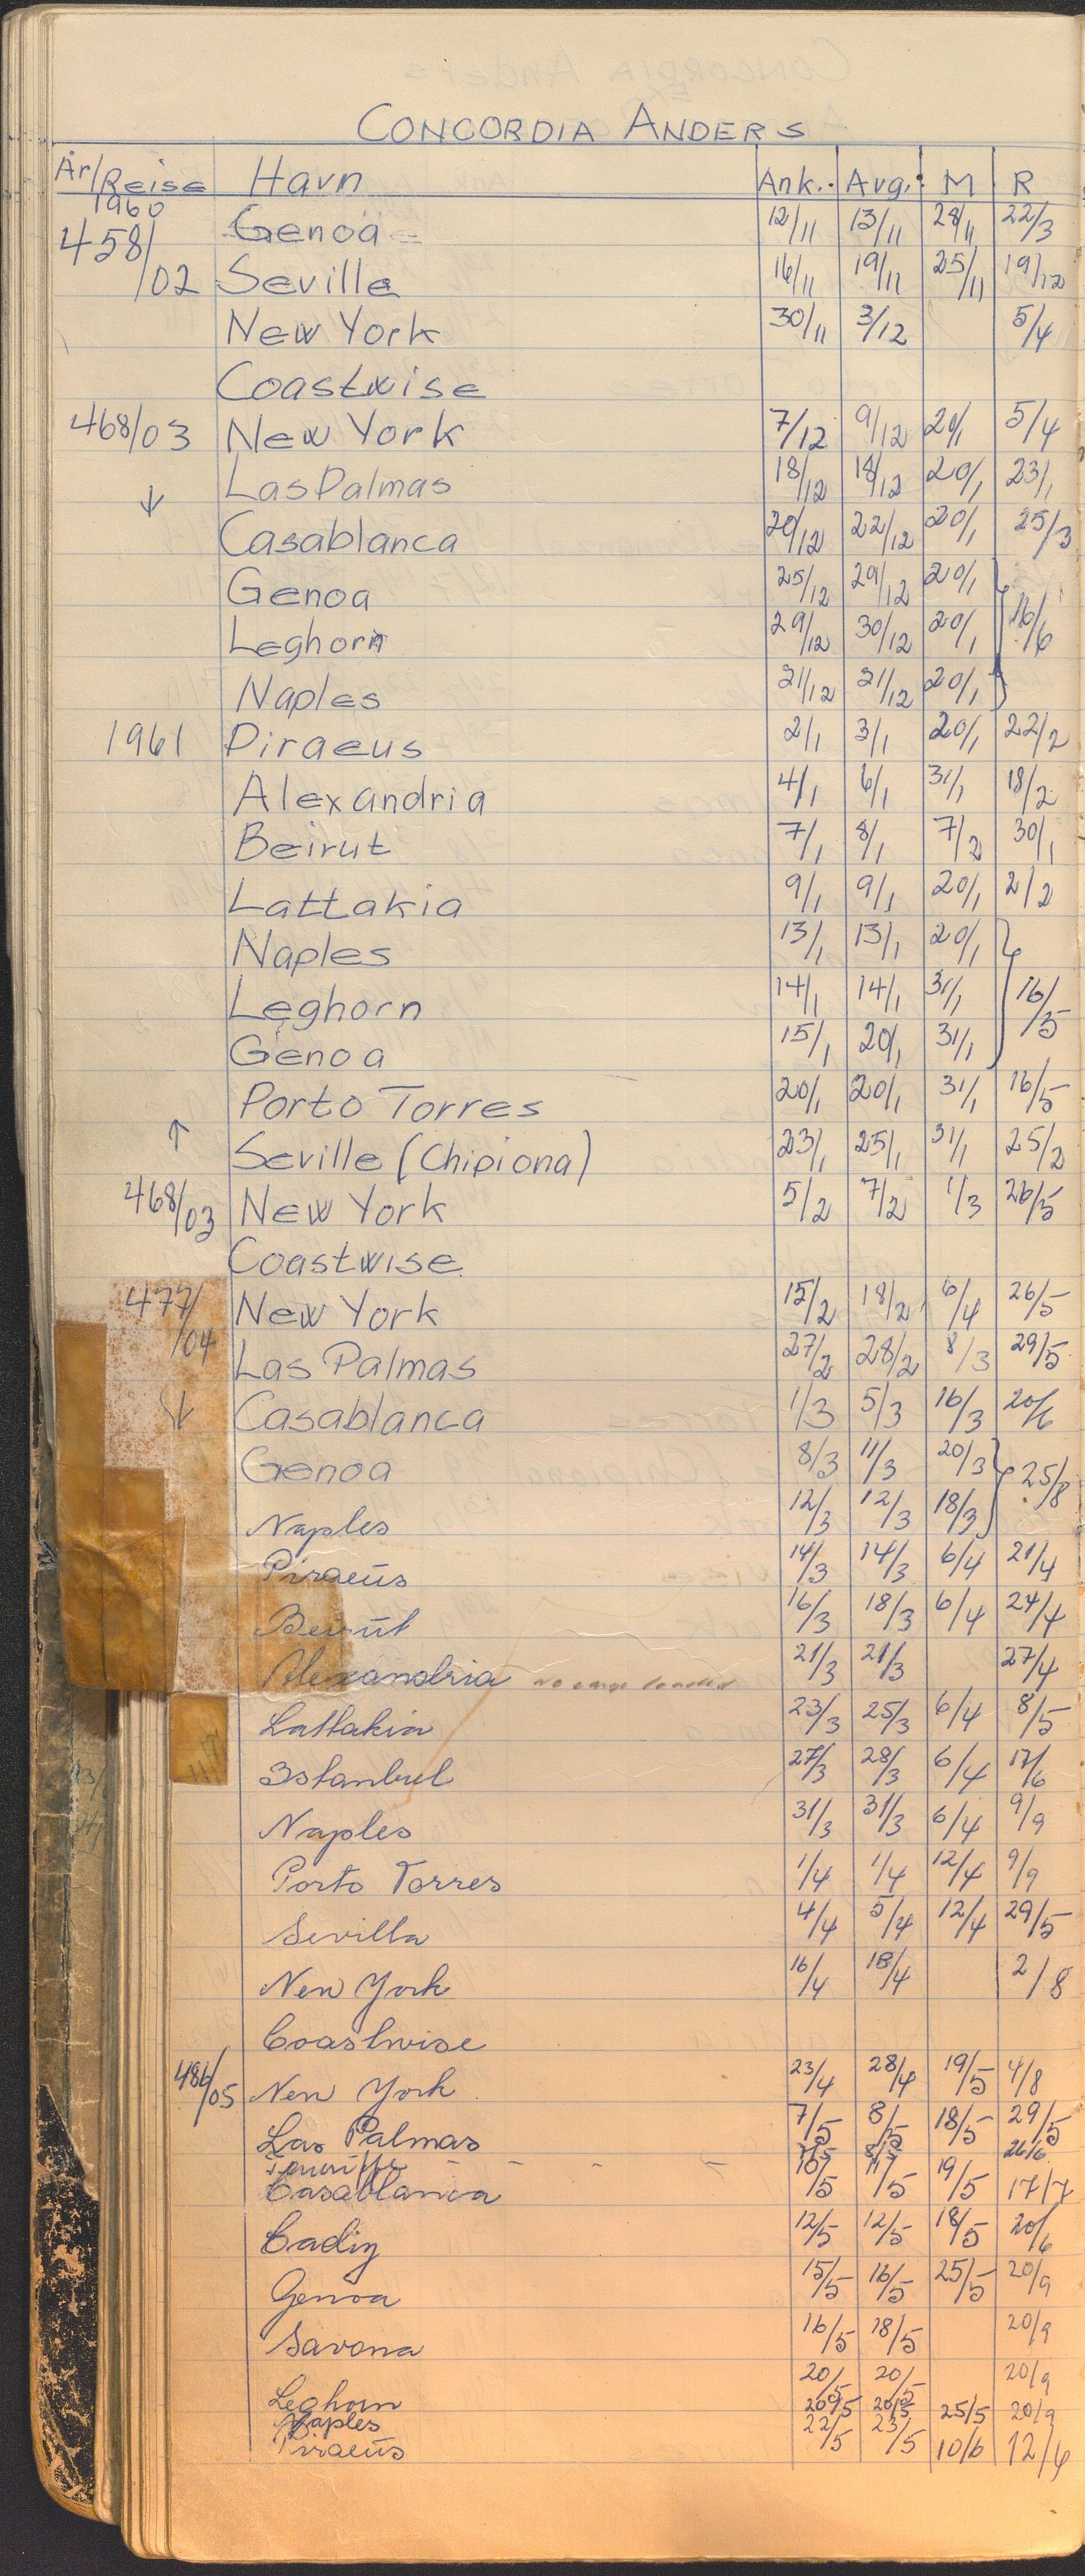 CONCORDIA ANDERS
År/Reise Havn Ank. Avg. M R
1960
458/02 Genoa 12/11 13/11 28/11 22/3
Seville 16/11 19/11 25/11 19/12
New York 30/11 3/12 5/4
Coastwise
468/03 New York 7/12 9/12 20/1 5/4
↓ Las Palmas 18/12 18/12 20/1 23/1
Casablanca 20/12 22/12 20/1 25/3
Genoa 25/12 29/12 20/1
Leghorn 29/12 30/12 20/1 16/6
Naples 31/12 31/12 20/1
1961 Piraeus 2/1 3/1 20/1 22/2
Alexandria 4/1 6/1 31/1 18/2
Beirut 7/1 8/1 7/2 30/1
Lattakia 9/1 9/1 20/1 2/2
Naples 13/1 13/1 20/1
Leghorn 14/1 14/1 31/1 16/5
Genoa 15/1 20/1 31/1
Porto Torres 20/1 20/1 31/1 16/5
↑ Seville (Chipiona) 23/1 25/1 31/1 25/2
468/03 New York 5/2 7/2 1/3 26/5
Coastwise
477/04 New York 15/2 18/2 6/4 26/5
Las Palmas 27/2 28/2 8/3 29/5
↓ Casablanca 1/3 5/3 16/3 20/6
Genoa 8/3 11/3 20/3 25/8
Naples 12/3 12/3 18/3
Piraeus 14/3 14/3 6/4 21/4
Beirut 16/3 18/3 6/4 24/4
Alexandria no cargo loaded 21/3 21/3 27/4
Lattakia 23/3 25/3 6/4 8/5
Istanbul 27/3 28/3 6/4 17/6
Naples 31/3 31/3 6/4 9/9
Porto Torres 1/4 1/4 12/4 9/9
Sevilla 4/4 5/4 12/4 29/5
New York 16/4 18/4 2/8
Coastwise
486/05 New York 23/4 28/4 19/5 4/8
Las Palmas 7/5 8/5 18/5 29/5
Teneriffe - - - 7/5 8/5 26/6
Casablanca 10/5 11/5 19/5 17/7
Cadiz 12/5 12/5 18/5 20/6
Genoa 15/5 16/5 25/5 20/9
Savona 16/5 18/5 20/9
Leghorn 20/5 20/5 20/9
Naples 20/5 20/5 25/5 20/9
Piraeus 22/5 23/5 10/6 12/6